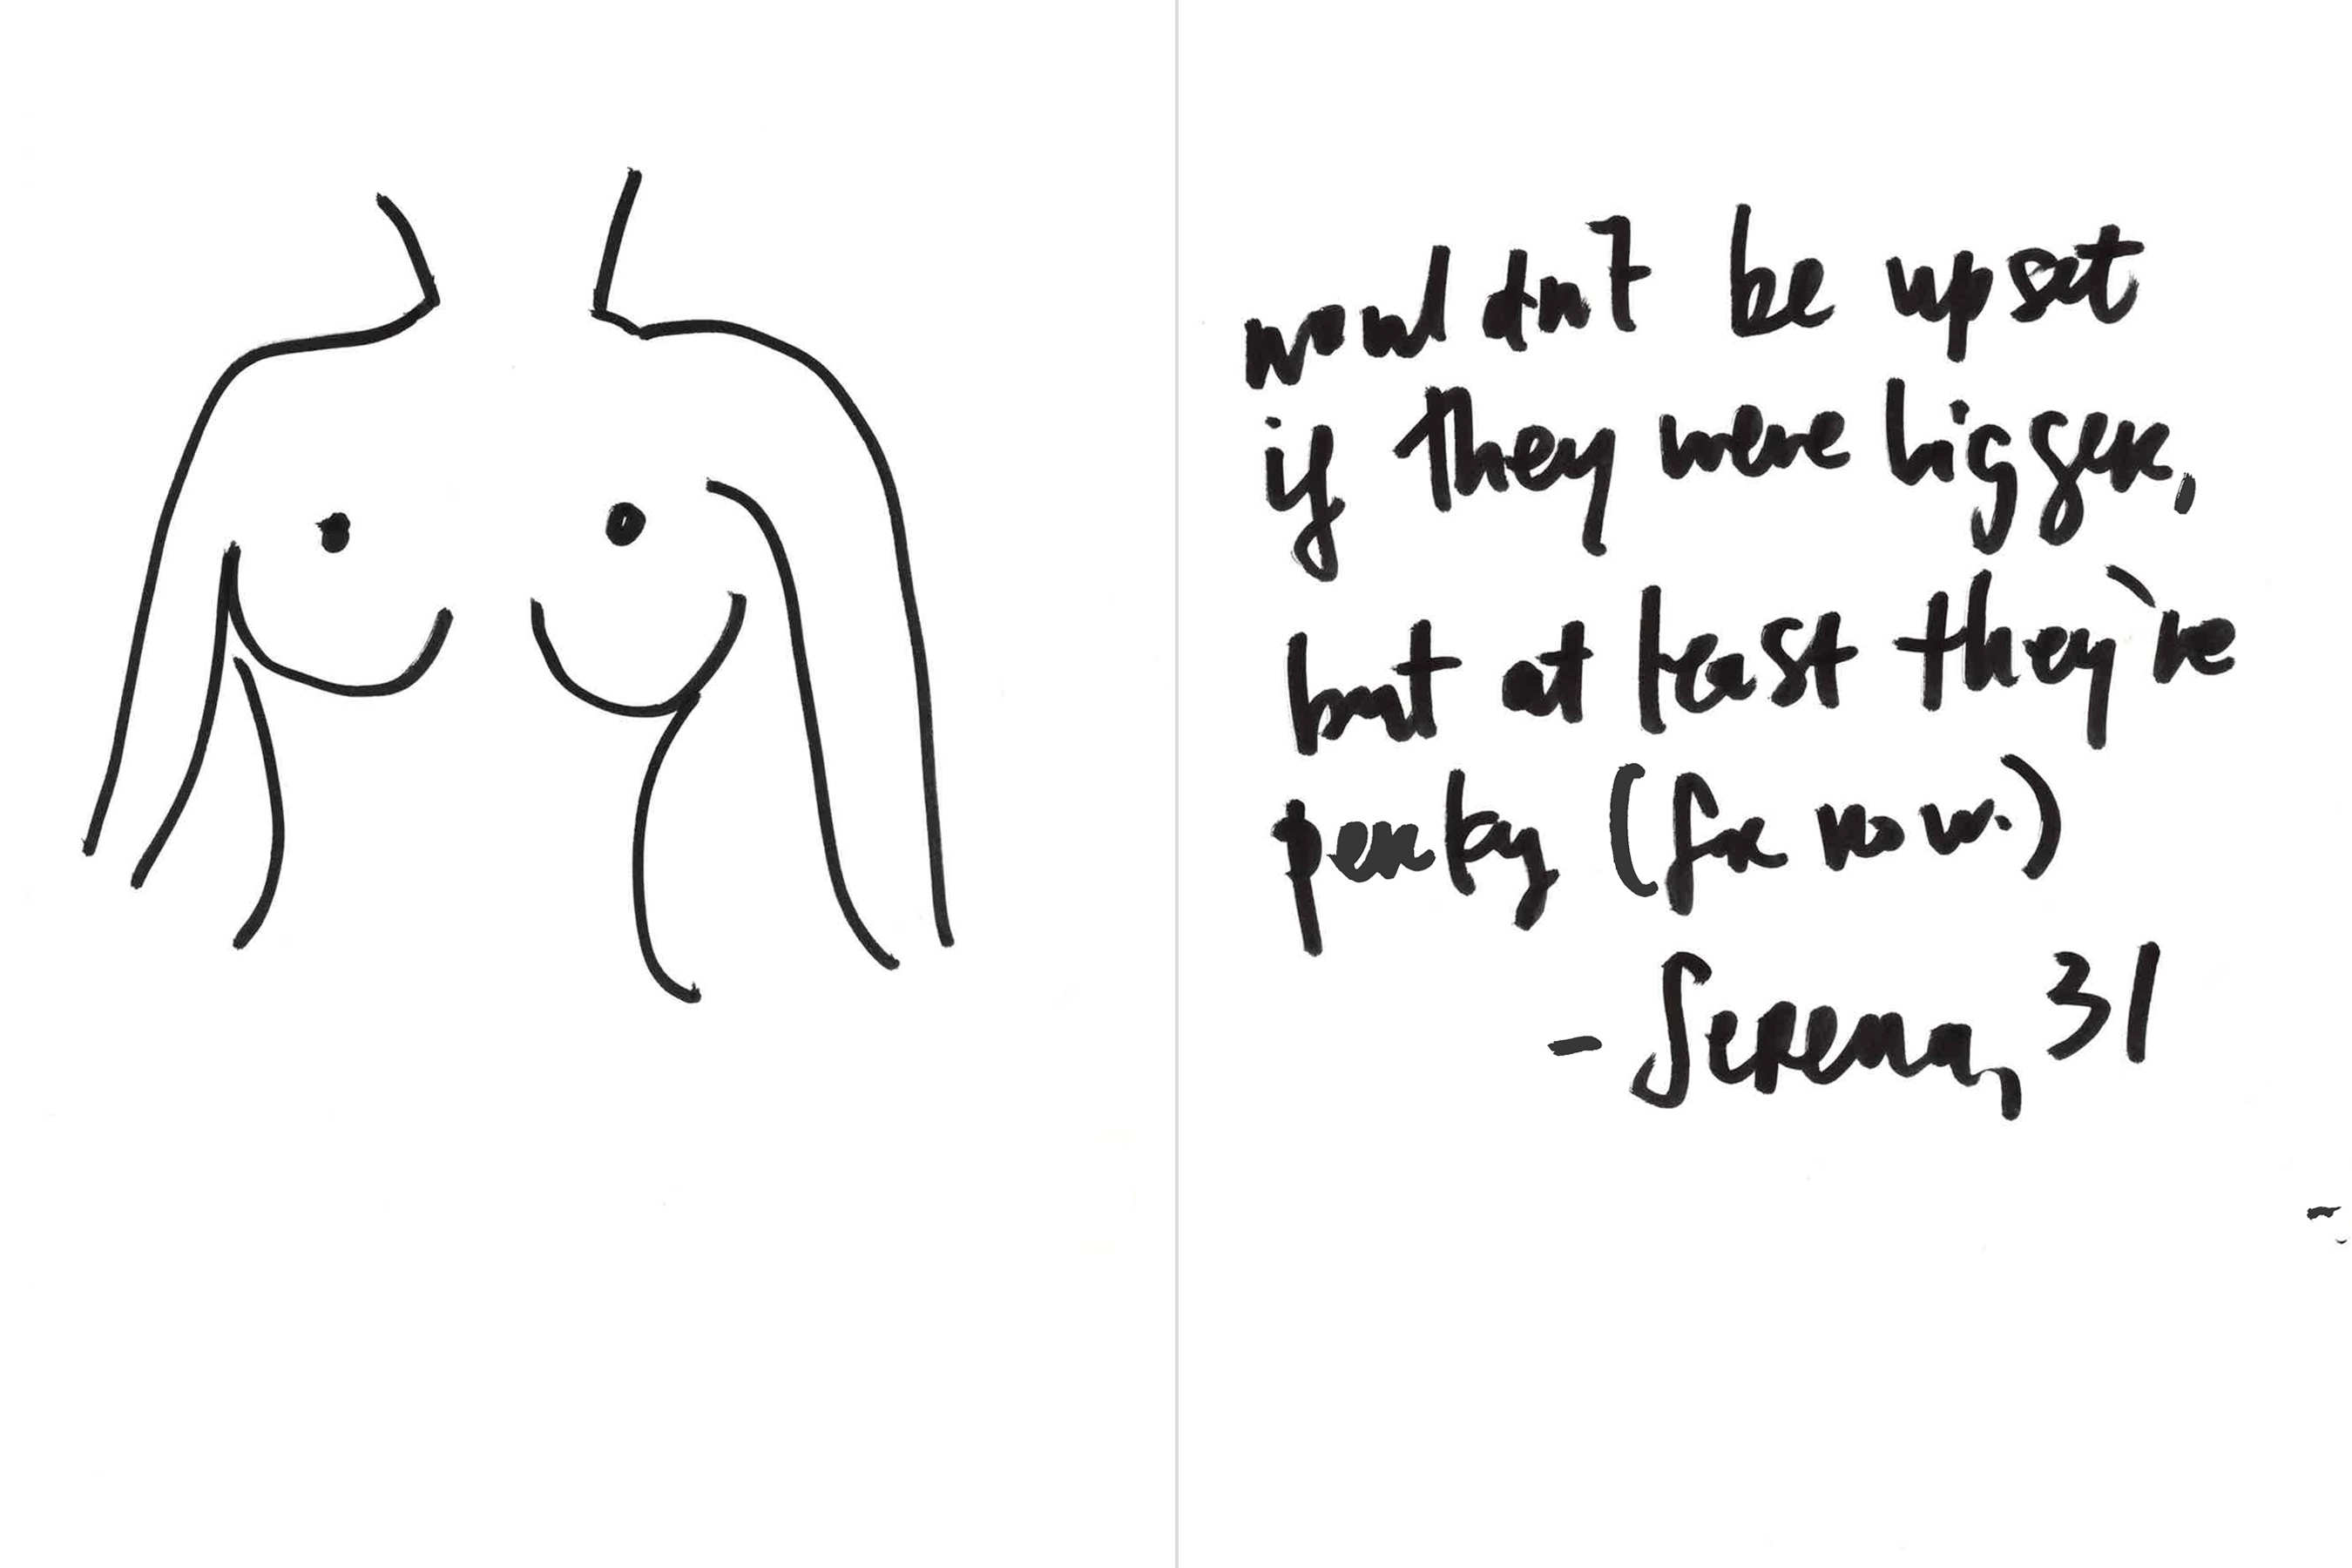 wouldn't be upset
if they were bigger,
but at least they're
perky (for now.)
- Serena, 31